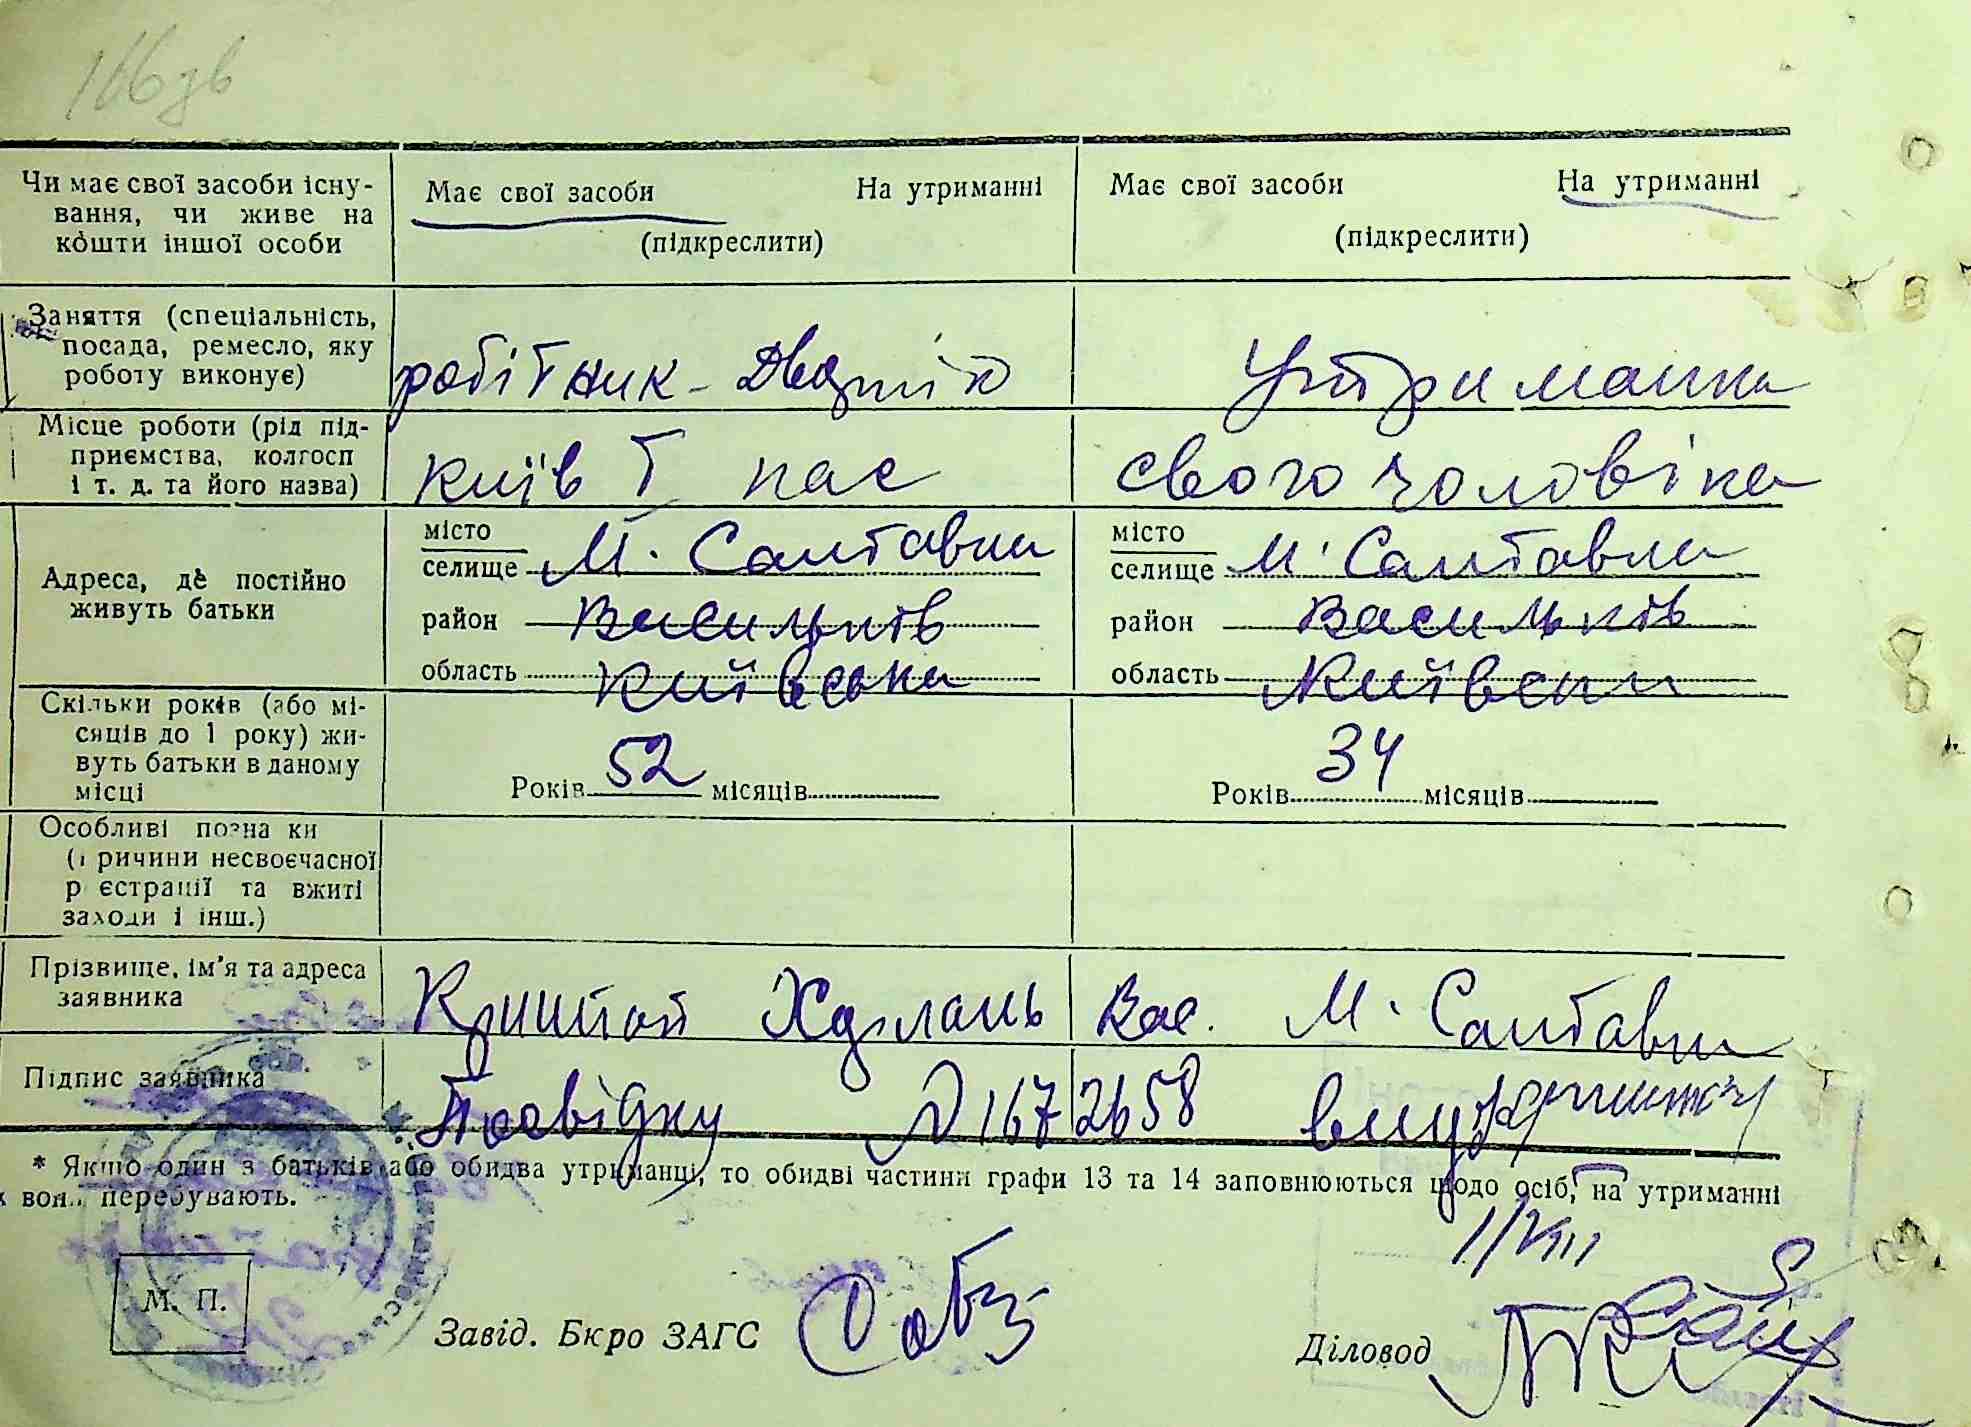 166 зв
Чи має свої засоби існу-
вання, чи живе на
кошти іншої особи
Має свої засоби На утриманні
(підкреслити)
Має свої засоби На утриманні
(підкреслити)
Заняття (спеціальність,
посада, ремесло, яку
роботу виконує)
робітник-
Утриманка
Місце роботи (рід під-
приємства, колгосп
і т. д. та його назва)
Київ
свого чоловіка
Адреса, де постійно
живуть батьки
місто
селище М. Салтавка
район Васильків
область Київська
місто
селище М. Салтавка
район Васильків
область Київськ
Скільки років (або мі-
сяців до 1 року) жи-
вуть батьки в даному
місці
Років 52 місяців
Років 34 місяців
Особливі позна ки
( ричини несвоєчасної
р єстрації та вжиті
заходи і інш.)
Прізвище, ім'я та адреса
заявника
Вас. М. Салтавка
Підпис заявника
Посвідку № 1672658
* Якщо один з батьків або обидва утриманці, то обидві частини графи 13 та 14 заповнюються щодо осіб, на утриманні
вон перебувають.
1/VIII
М. П.
Завід. Бкро ЗАГС
Діловод